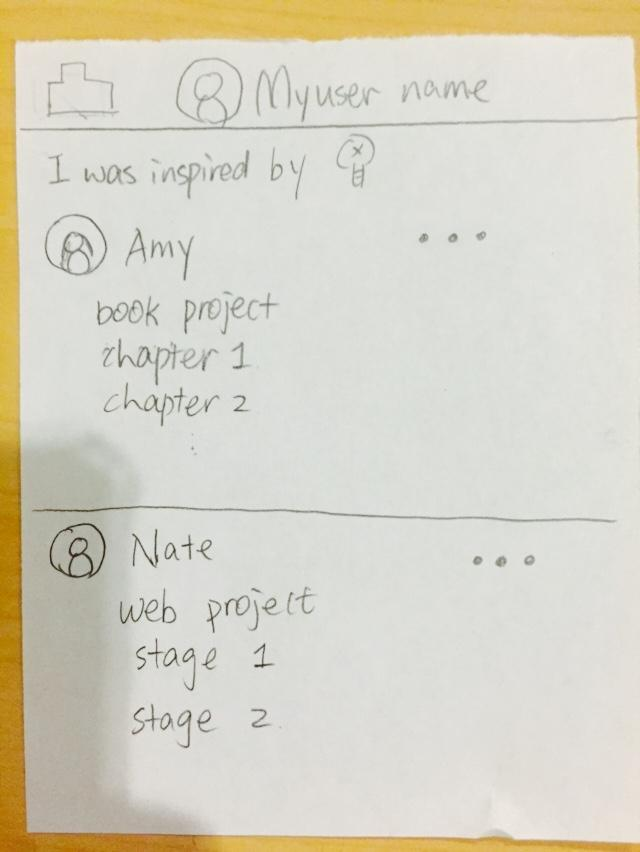 Myuser name
I was inspired by
Amy
book project
chapter 1
chapter 2
Nate
web project
stage 1
stage 2